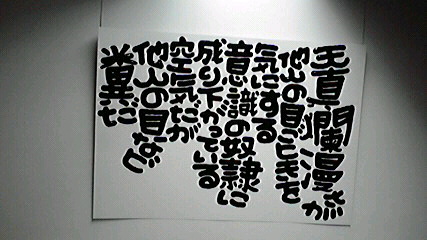 天真爛漫さが
他人の目ごときを
気にする
意識の奴隷に
成り下がっている
空気だが
他人の目など
糞だ